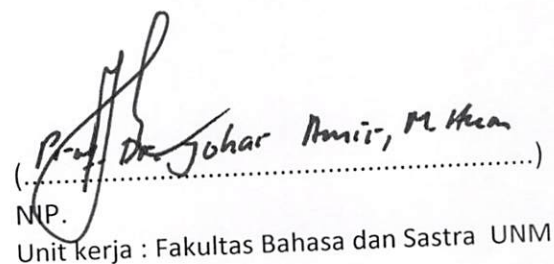 (Prof. Dr. Johar Amir, M. Hum)
NIP.
Unit kerja : Fakultas Bahasa dan Sastra UNM